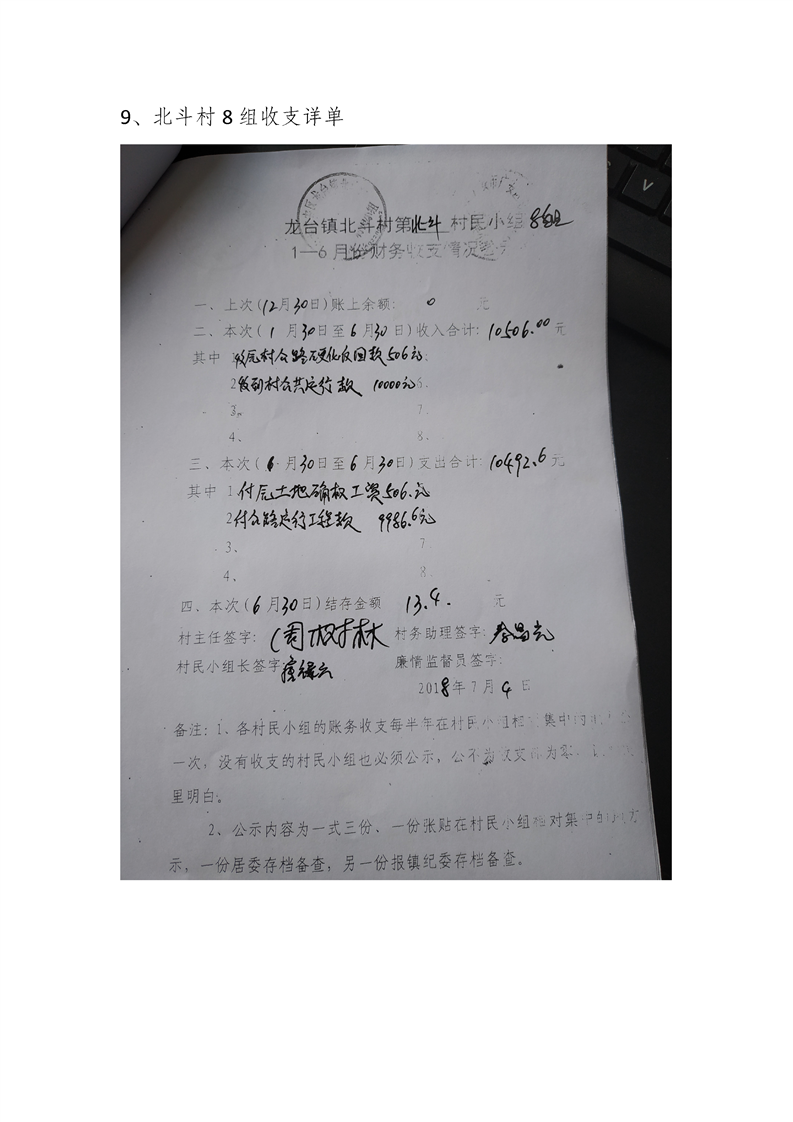 9、北斗村 8 组收支详单
龙台镇北斗村第北斗 村民小组 8组
1—6 月份财务收支情况公示
一、上次(12月30日)账上余额: 0 元
二、本次( 1 月30日至 6 月30日)收入合计: 10506.00 元
其中 1 村公路硬化返回款506元
2收到村公共运行款 10000元 6.
3、 7.
4、 8.
三、本次( 6 月30日至 6 月30日)支出合计: 10492.6 元
其中 1.付 土地确权工资506.元
2付公路运行工程款 9986.6元
3、 7.
4、 8.
四、本次( 6 月30日)结存金额 13.4. 元
村主任签字: 周树林 村务助理签字:
村民小组长签字: 廉情监督员签字:
2018年 7 月 4 日
备注: 1、各村民小组的账务收支每半年在村民小组相对集中的
一次, 没有收支的村民小组也必须公示, 公示为收支 为零
里明白。
2、公示内容为一式三份、一份张贴在村民小组相对集中的地方
示, 一份居委存档备查, 另一份报镇纪委存档备查。